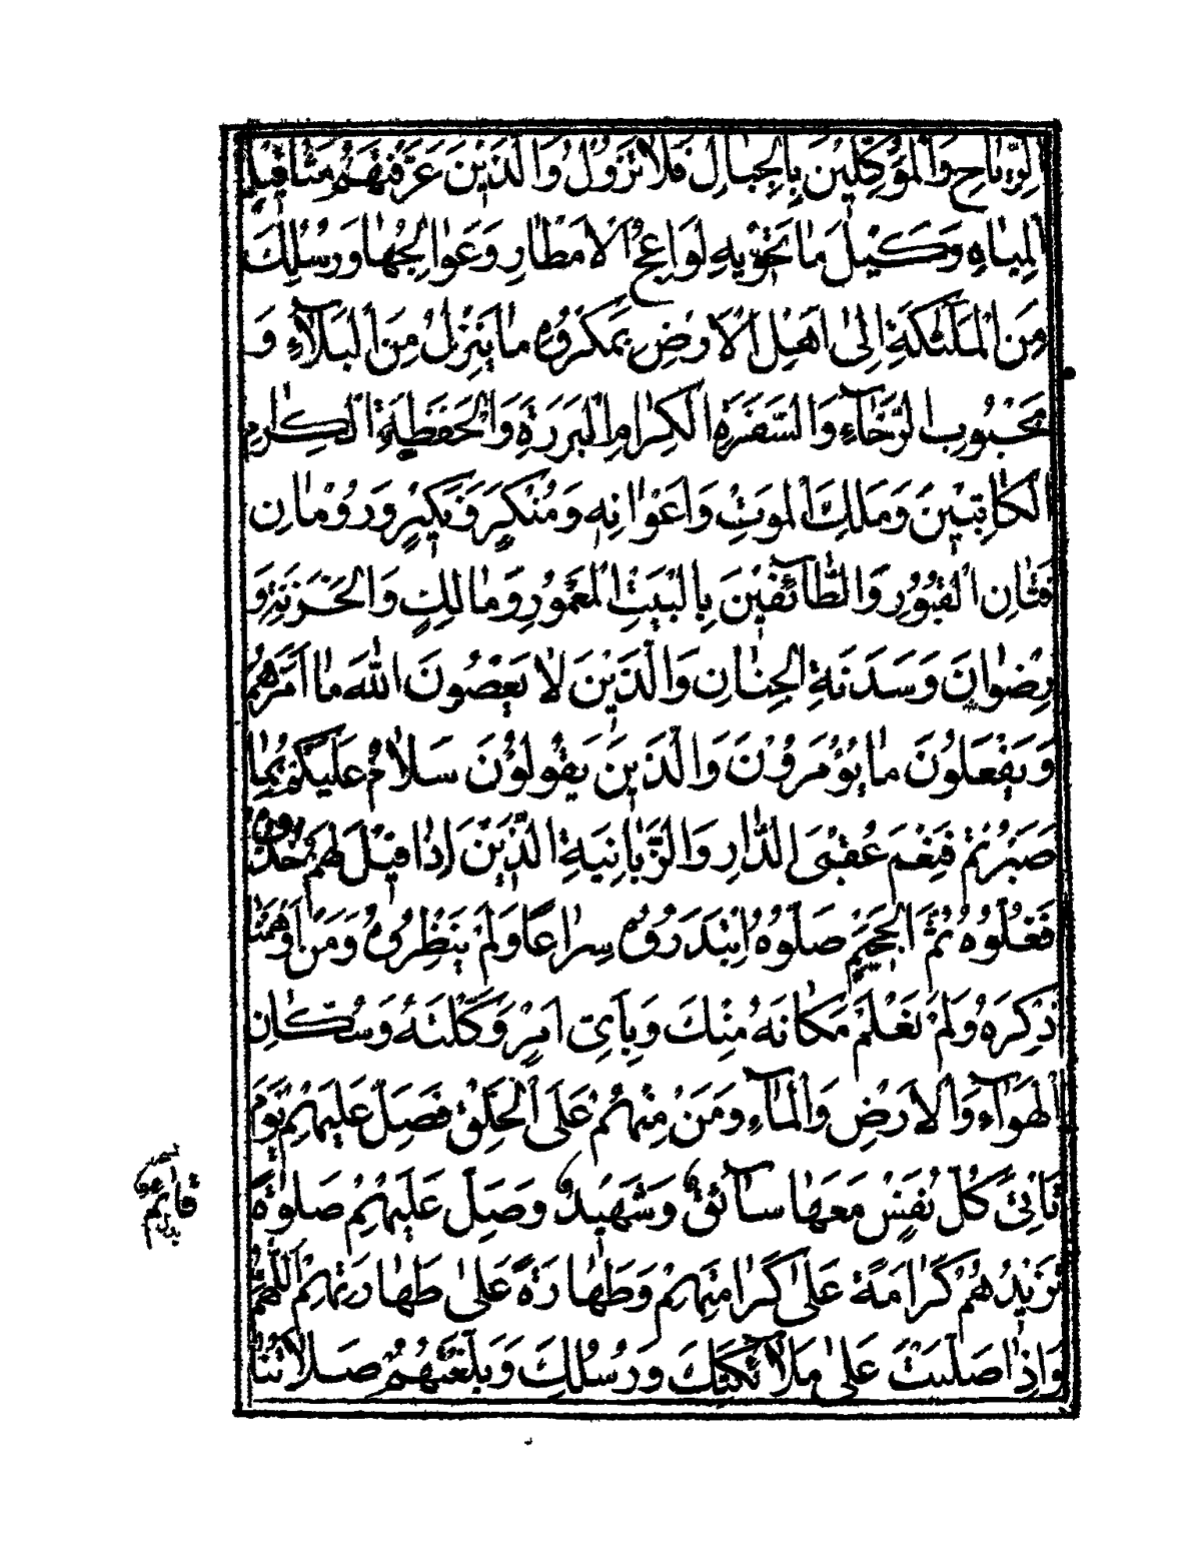 الرِّيَاحِ وَالْمُوَكَّلِيْنَ بِالْجِبَالِ فَلَا تَزُوْلُ وَالَّذِيْنَ عَرَّفْتَهُمْ مَثَاقِيْلَ
الْمِيَاهِ وَكَيْلَ مَا تَحْوِيْهِ لَوَاعِجُ الْاَمْطَارِ وَعَوَالِجُهَا وَرُسُلِكَ
مِنَ الْمَلٰئِكَةِ اِلٰى اَهْلِ الْاَرْضِ بِمَكْرُوْهِ مَا يَنْزِلُ مِنَ الْبَلَآءِ وَ
مَحْبُوْبِ الرَّخَآءِ وَالسَّفَرَةِ الْكِرَامِ الْبَرَرَةِ وَالْحَفَظَةِ الْكِرَامِ
الْكَاتِبِيْنَ وَمَلَكِ الْمَوْتِ وَاَعْوَانِهٖ وَمُنْكَرٍ وَنَكِيْرٍ وَرُوْمَانَ
فَتَّانِ الْقُبُوْرِ وَالطَّآئِفِيْنَ بِالْبَيْتِ الْمَعْمُوْرِ وَمَالِكٍ وَالْخَزَنَةِ وَ
رِضْوَانَ وَسَدَنَةِ الْجِنَانِ وَالَّذِيْنَ لَا يَعْصُوْنَ اللّٰهَ مَا اَمَرَهُمْ
وَيَفْعَلُوْنَ مَا يُؤْمَرُوْنَ وَالَّذِيْنَ يَقُوْلُوْنَ سَلَامٌ عَلَيْكُمْ بِمَا
صَبَرْتُمْ فَنِعْمَ عُقْبَى الدَّارِ وَالزَّبَانِيَةِ الَّذِيْنَ اِذَا قِيْلَ لَهُمْ خُذُوْهُ
فَغُلُّوْهُ ثُمَّ الْجَحِيْمَ صَلُّوْهُ ابْتَدَرُوْهُ سِرَاعًا وَلَمْ يُنْظِرُوْهُ وَمَنْ اَوْهَمْنَا
ذِكْرَهُ وَلَمْ نَعْلَمْ مَكَانَهُ مِنْكَ وَبِاَيِّ اَمْرٍ وَكَّلْتَهُ وَسُكَّانِ
الْهَوَآءِ وَالْاَرْضِ وَالْمَآءِ وَمَنْ مِنْهُمْ عَلَى الْخَلْقِ فَصَلِّ عَلَيْهِمْ يَوْمَ
تَاْتِيْ كُلُّ نَفْسٍ مَعَهَا سَآئِقٌ وَشَهِيْدٌ وَصَلِّ عَلَيْهِمْ صَلٰوةً
تَزِيْدُهُمْ كَرَامَةً عَلٰى كَرَامَتِهِمْ وَطَهَارَةً عَلٰى طَهَارَتِهِمْ اَللّٰهُمَّ
وَاِذَا صَلَّيْتَ عَلٰى مَلَآئِكَتِكَ وَرُسُلِكَ وَبَلَّغْتَهُمْ صَلَاتَنَا